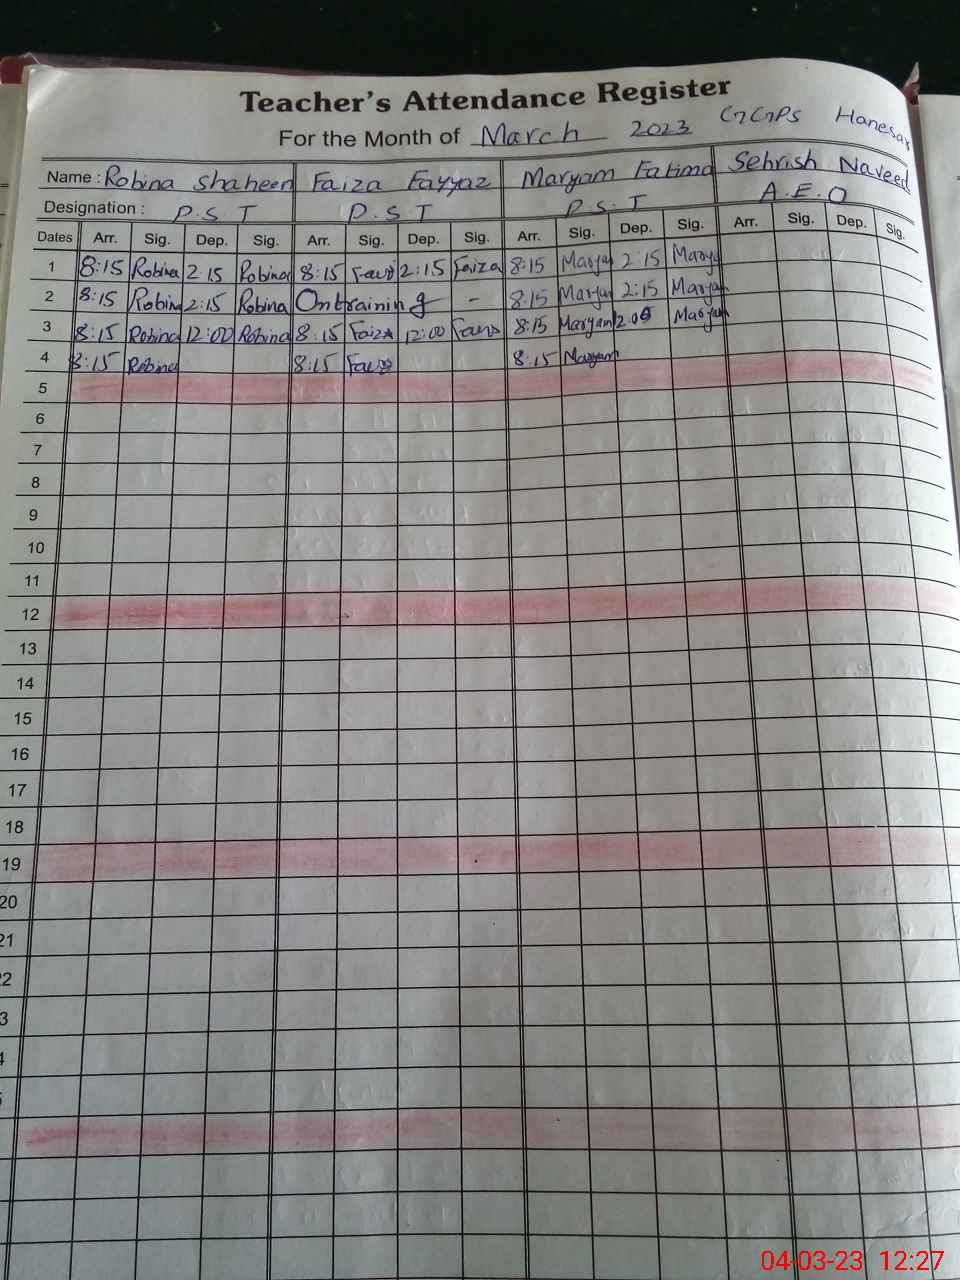 Teacher's Attendance Register
For the Month of March 2023 GGPS Hanesar
Name : Robina Shaheen Faiza Fayyaz Maryam Fatima Sehrish Naveed
Designation : P.S.T P.S.T P.S.T A.E.O
Dates Arr. Sig. Dep. Sig. Arr. Sig. Dep. Sig. Arr. Sig. Dep. Sig. Arr. Sig. Dep. Sig.
1 8:15 Robina 2:15 Robina 8:15 Faiza 2:15 Faiza 8:15 Maryam 2:15 Maryam
2 8:15 Robina 2:15 Robina On training - 8:15 Maryam 2:15 Maryam
3 8:15 Robina 12:00 Robina 8:15 Faiza 12:00 Faiza 8:15 Maryam 12:00 Maryam
4 8:15 Robina 8:15 Faiza 8:15 Maryam
5
6
7
8
9
10
11
12
13
14
15
16
17
18
19
20
21
22
3
4
04-03-23 12:27